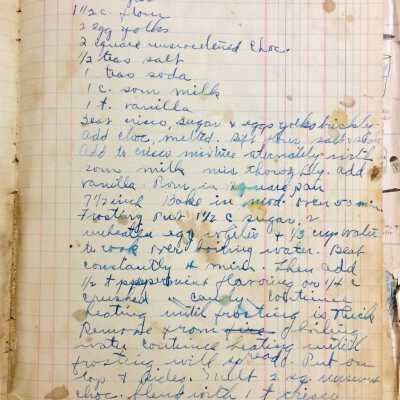 1 1/2 c. flour
2 egg yolks
2 square unsweetened choc.
1/2 teas salt
1 teas soda
1 c. sour milk
1 t. vanilla
Beat crisco, sugar & eggs yolks
add choc. melted. Sift flour salt soda
add to crisco mixture alternately with
sour milk mix thoroghly. add
vanilla Pour in square pan
7 1/2 inch Bake in mod. oven 55 min
Frosting put 1 1/2 c sugar, 2
unbeaten egg whites & 1/3 cup water
to cook over boiling water. Beat
constantly 4 min. Then add
1/2 t peppermint flavoring or 1/4 c
crushed candy continue
beating until frosting is thick
Remove from boiling
water continue beating until
frosting will spread. Put on
top & sides. Melt 2 sq unswee
choc. blend with 1 t crisco